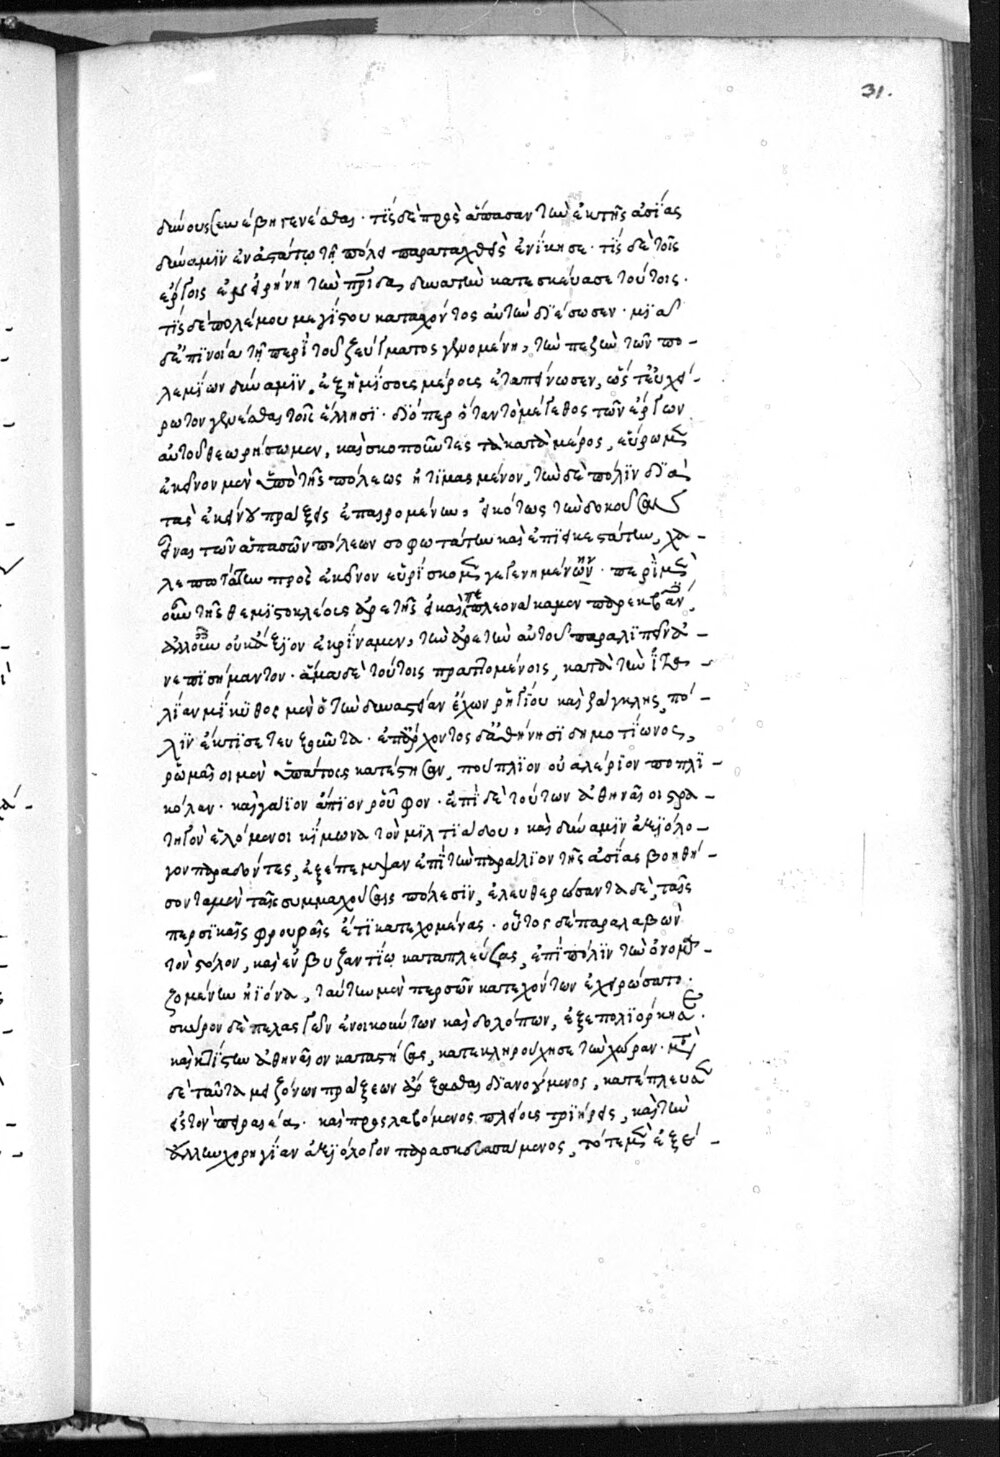 31.
δεινοὺς συνέβη γενέσθαι · τίς δὲ πρὸς ἅπασαν τὴν ἐκ τῆς ἀσίας
δύναμιν ἀναστάτῳ τῇ πόλει παραταχθεὶς ἐνίκησε · τίς δὲ τοῖς
ἔργοις ἐν εἰρήνῃ τὴν πρίδα δυνατὴν κατεσκεύασε τούτοις ·
τίς δὲ πολέμου μεγίστου κατασχόντος αὐτὴν διέσωσεν · μιᾶ
δ' ἐπινοία τῇ περὶ τοῦ ζεύγματος γενομένη, τὴν πεζὴν τῶν πο-
λεμίων δύναμιν . ἐξ ἡμίσοις μέροις ἐταπείνωσεν, ὥστ' εὐχεί-
ρωτον γενέσθαι τοῖς ἕλλησι · διόπερ ὅταν τὸ μέγεθος τῶν ἔργων
αὐτοῦ θεωρήσωμεν, καὶ σκοποῦντες τὰ κατὰ μέρος, εὕρωμεν
ἐκεῖνον μὲν ὑπὸ τῆς πόλεως ἠτιμασμένον, τὴν δὲ πόλιν διὰ
τὰς ἐκείνου πράξεις ἐπαιρομένην, εἰκότως τὴν δοκοῦσαν
εἶναι τῶν ἁπασῶν πόλεων σοφωτάτην καὶ ἐπιεικεστάτην, χα-
λεπωτάτην πρὸς ἐκεῖνον εὑρίσκομεν γεγενημένην · περὶ μὲν
οὖν τῆς θεμιστοκλέους ἀρετῆς εἰ καὶ πεπλεονάκαμεν παρεκβάντες,
ἀλλ' οὖν οὐκ ἄξιον ἐκρίναμεν, τὴν ἀρετὴν αὐτοῦ παραλιπεῖν ἀ-
νεπισήμαντον · ἅμα δὲ τούτοις πραττομένοις, κατὰ τὴν ἰτα-
λίαν μίκυθος μὲν ὁ τὴν δυναστείαν ἔχων ῥηγίου καὶ ζάγκλης, πό-
λιν ἔκτισε πυξοῦντα · ἐπ' ἄρχοντος δ' ἀθήνησι δημοτίωνος,
ῥωμαῖοι μὲν ὑπάτοις κατέστησαν, πούπλιον οὐαλέριον ποπλι-
κόλαν · καὶ γάϊον ἄπιον ῥοῦφον · ἐπὶ δὲ τούτων ἀθηναῖοι στρα-
τηγὸν ἑλόμενοι κίμωνα τὸν μιλτιάδου, καὶ δύναμιν ἀξιόλο-
γον παραδόντες, ἐξέπεμψαν ἐπὶ τὴν παράλιον τῆς ἀσίας βοηθή-
σοντα μὲν ταῖς συμμαχούσαις πόλεσιν, ἐλευθερώσοντα δὲ, ταῖς
περσικαῖς φρουραῖς ἔτι κατεχομένας · οὗτος δὲ παραλαβὼν
τὸν στόλον, καὶ ἐν βυζαντίῳ καταπλεύσας, ἐπὶ πόλιν τὴν ὀνομα-
ζομένην ἠϊόνα, ταύτην μὲν περσῶν κατεχόντων ἐχειρώσατο ·
σκῦρον δὲ πελασγῶν ἐνοικούντων καὶ δολόπων, ἐξεπολιόρκησε ·
καὶ κτίστην ἀθηναῖον καταστήσας, κατεκληρούχησε τὴν χώραν · μετὰ
δὲ ταῦτα μειζόνων πράξεων ἄρξασθαι διανοούμενος, κατέπλευσεν
εἰς τὸν πειραιέα · καὶ προσλαβόμενος πλείοις τριήρεις, καὶ τὴν
ἄλλην χορηγίαν ἀξιόλογον παρασκευασάμενος, τότε μὲν ἐξέ-